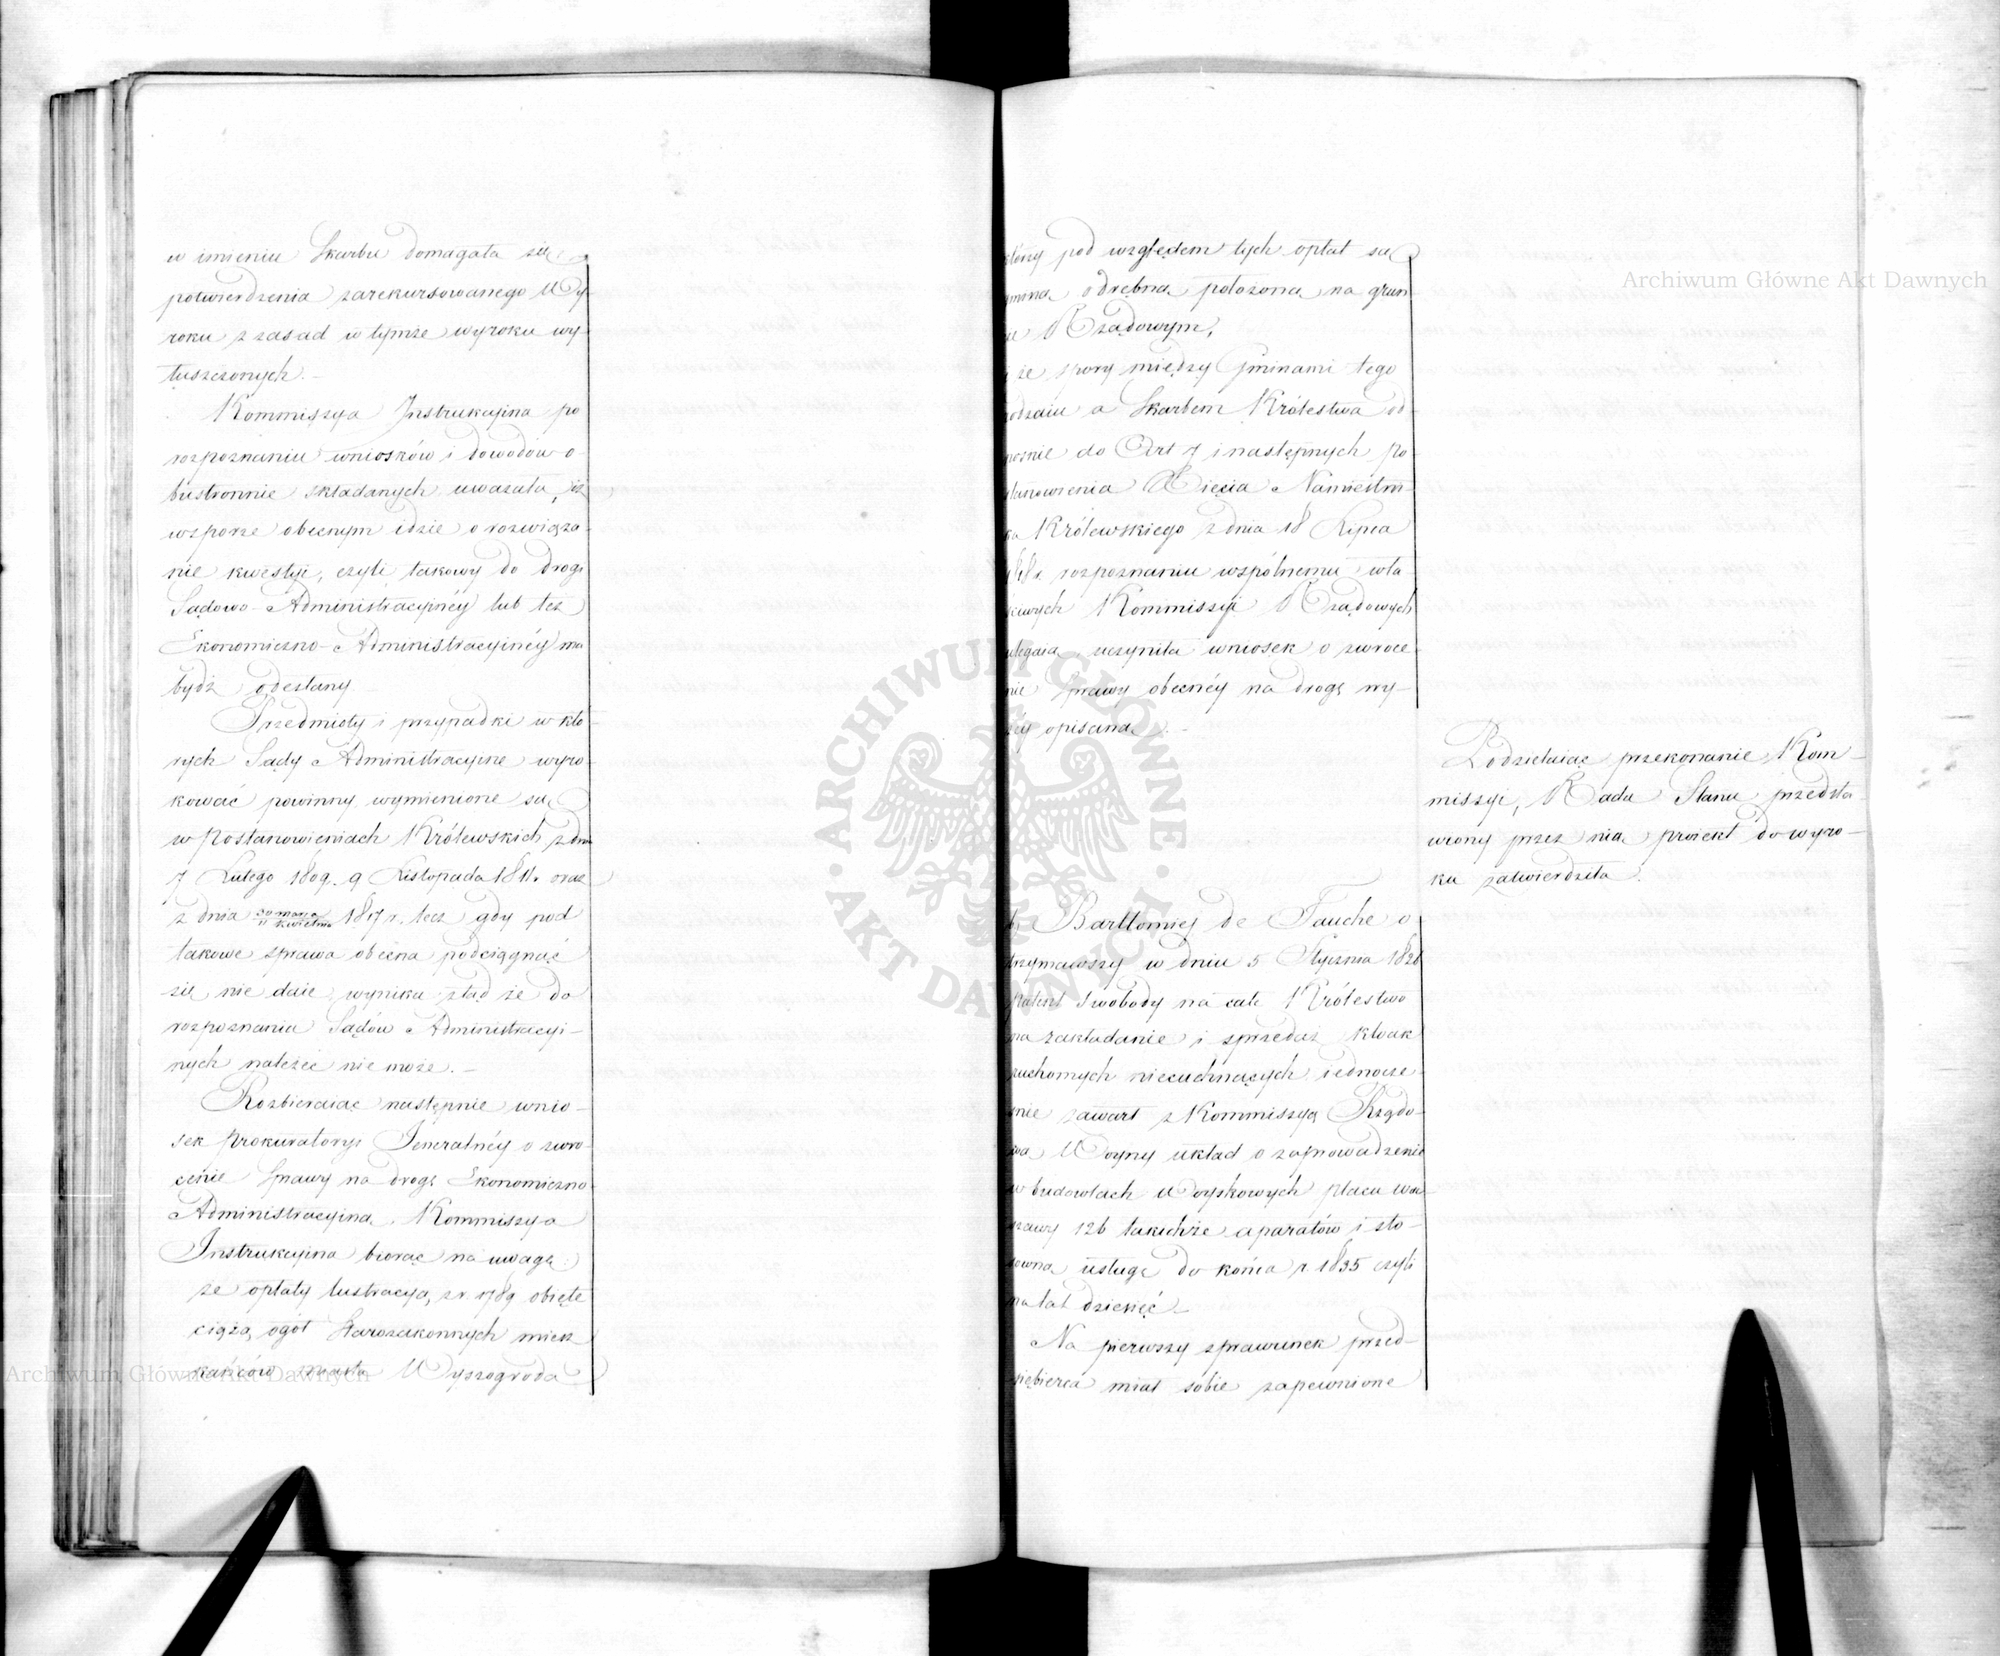 w imieniu Skarbu domagała się
potwierdzenia zarekursowanego Wy-
roku z zasad w tymże wyroku wy-
łuszczonych.
Kommissya Instrukcyina po
rozpoznaniu wniosków i dowodów o-
bustronnie składanych uważała, iż
w sporze obecnym idzie o rozwiąza-
nie kwestyi, czyli takowy do drogi
Sądowo-Administracyinéy lub też
Ekonomiczno-Administracyinéy ma
bydź odesłany.
Przedmioty i przypadki w któ-
rych Sądy Administracyine wyro-
kować powinny wymienione są
w Postanowieniach Królewskich z dnia
7 Lutego 1809. 9 Listopada 1811. oraz
z dnia 30 marca / 11 kwietnia 1817 r. lecz gdy pod
takowe sprawa obecna podciągnąć
się nie daie, wynika ztąd że do
rozpoznania Sądów Administracyi-
nych należeć nie może.
Rozbieraiąc następnie wnio-
sek Prokuratoryi Jeneralnéy o zwró-
cenie sprawy na drogę Ekonomiczno
Administracyiną, Kommissya
Instrukcyina biorąc na uwagę:
że opłaty lustracyą z r. 1789 obięte
ciążą ogół Starozakonnych miesz-
kańców miasta Wyszogroda
który pod względem tych opłat są
gminą odrębną położoną na grun-
cie Rządowym,
i że spory między Gminami tego
rodzaiu a Skarbem Królestwa od-
nośnie do Art 7 i następnych Po-
stanowienia Xięcia Namiestni-
ka Królewskiego z dnia 18 Lipca
1818 r. rozpoznaniu wspólnemu wła-
ściwych Kommissyi Rządowych
ulegaią, uczyniła wniosek o zwróce-
nie Sprawy obecnéy na drogę wy-
żéy opisaną.
Podzielaiąc przekonanie Kom-
missyi, Rada Stanu przedsta-
wiony przez nią proiekt do wyro-
ku zatwierdziła.
Bartłomiej de Fauche o
trzymawszy w dniu 5 Stycznia 1826
patent swobody na całe Królestwo
na zakładanie i sprzedaż kloak
ruchomych niecuchnących iednocze-
śnie zawarł z Kommissyą Rządo-
wą Woyny układ o zaprowadzenie
w budowlach Woyskowych placu War-
szawy 126 takichże aparatów i sto-
sowną usługę do końca r. 1835 czyli
na lat dziesięć.
Na pierwszy sprawunek przed-
siębierca miał sobie zapewnione
Archiwum Główne Akt Dawnych
Archiwum Główne Akt Dawnych
ARCHIWUM GŁÓWNE · AKT DAWNYCH ·